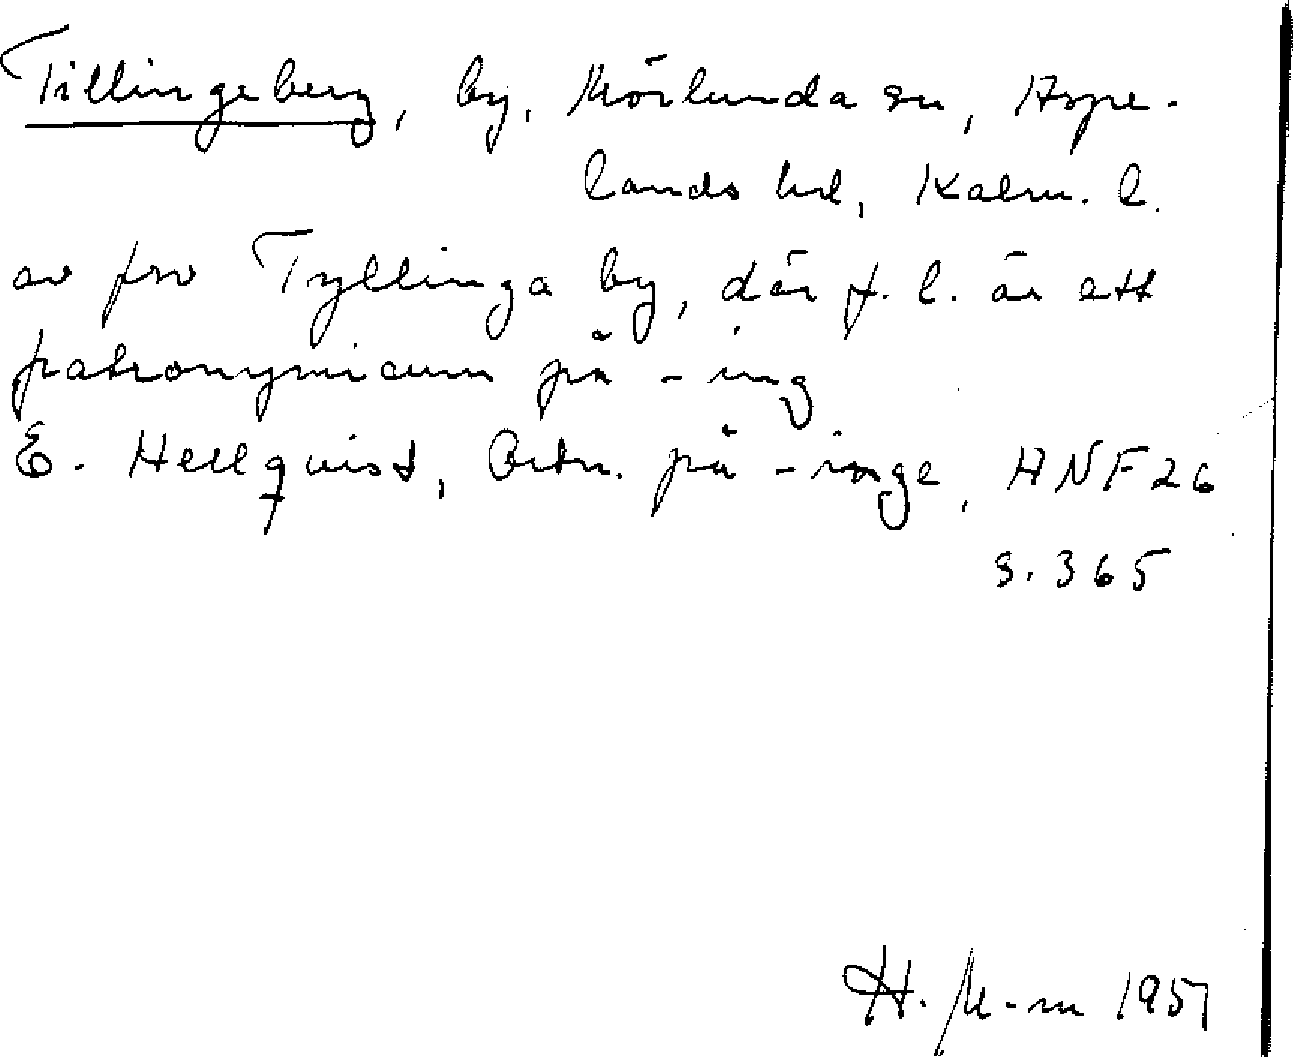 Tillingeberg, by, Mörlunda sn, Aspe-
lands hd, Kalm. l.
av fsv Tyllinga by, där f. l. är ett
patronymicum på -ing
E. Hellquist, Ortn. på -inge, ANF 26
s. 365
H. M-m 1957